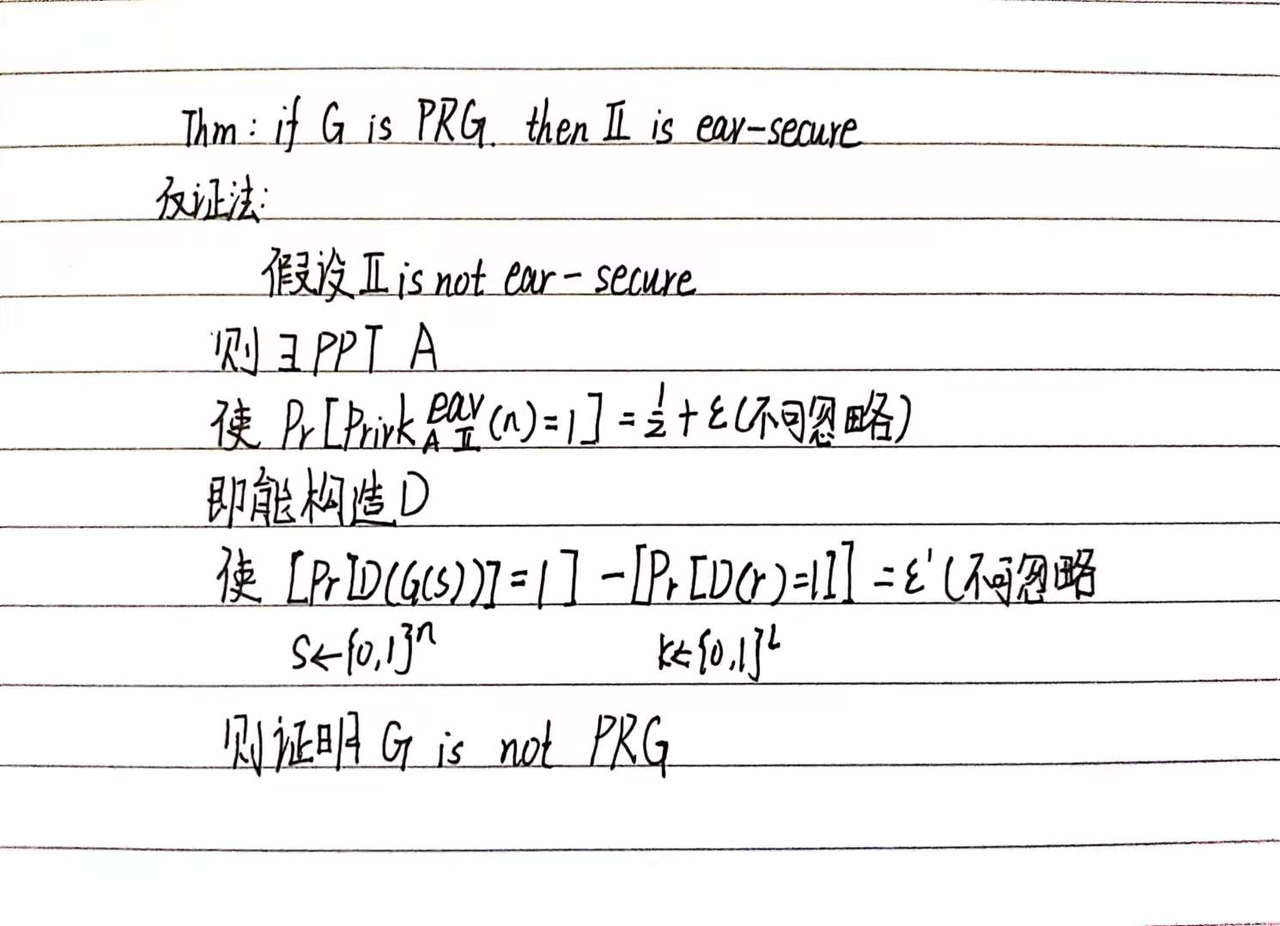 Thm: if G is PRG. then Π is eav-secure
反证法:
假设 Π is not eav-secure
则 ∃ PPT A
使 Pr[Privk^{eav}_{A Π}(n)=1] = 1/2 + ε(不可忽略)
即能构造 D
使 [Pr[D(G(s))]=1] - [Pr[D(r)=1]] = ε' (不可忽略
s←{0,1}^n k←{0,1}^l
则证明 G is not PRG